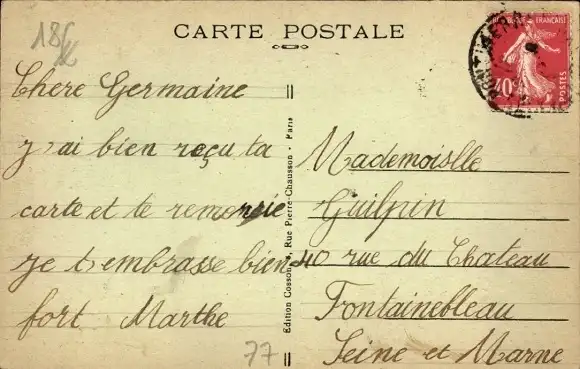 CARTE POSTALE
Chere Germaine
j'ai bien reçu ta
carte et te remercie
je t'embrasse bien
fort Marthe
77
Edition Cosson, Rue Pierre-Chausson - Paris
RÉPUBLIQUE FRANÇAISE
40c
POSTES
Mademoislle
Guilpin
40 rue du Chateau
Fontainebleau
Seine et Marne